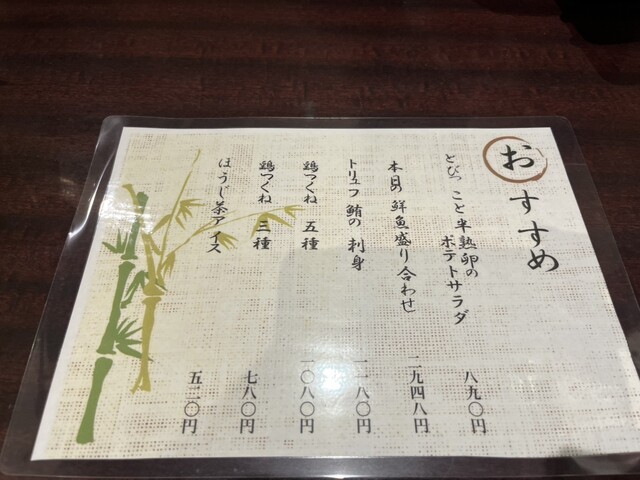 おすすめ
とびっこと半熟卵の
ポテトサラダ
八九〇円
本日の鮮魚盛り合わせ
二九四八円
トリュフ鮪の刺身
一一八〇円
鶏つくね 五種
一〇八〇円
鶏つくね 三種
七八〇円
ほうじ茶アイス
五二〇円